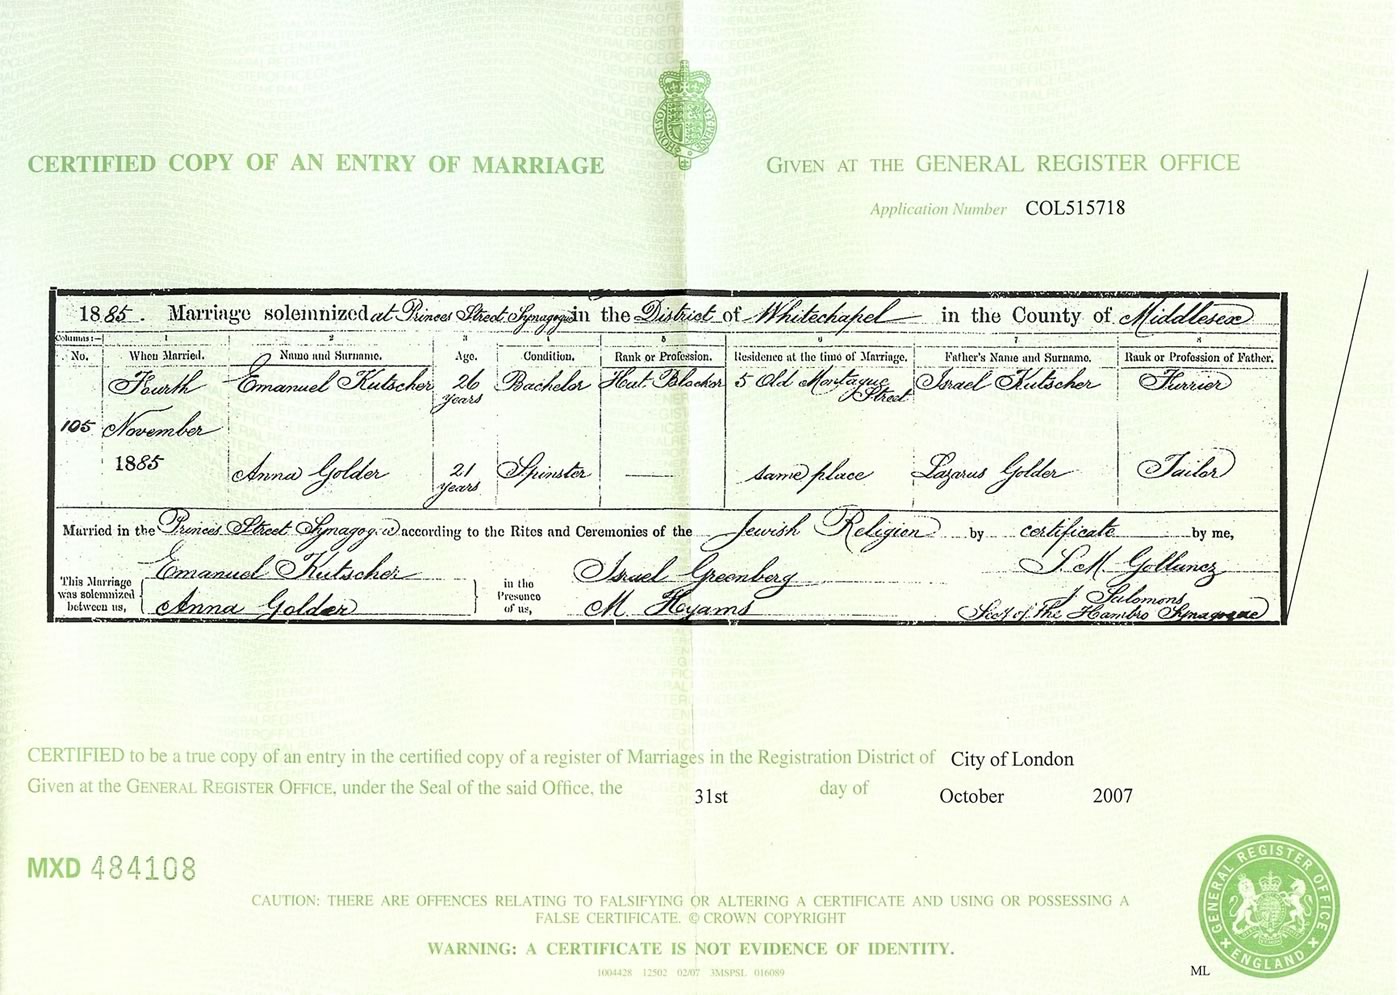 CERTIFIED COPY OF AN ENTRY OF MARRIAGE
GIVEN AT THE GENERAL REGISTER OFFICE
Application Number COL515718
1885. Marriage solemnized at Princes Street Synagogue in the District of Whitechapel in the County of Middlesex
Columns:— 1 2 3 4 5 6 7 8
No. When Married. Name and Surname. Age. Condition. Rank or Profession. Residence at the time of Marriage. Father's Name and Surname. Rank or Profession of Father.
Fourth Emanuel Kutscher 26 Bachelor Hat Blocker 5 Old Montague Israel Kutscher Furrier
years Street
105 November
1885 Anna Golder 21 Spinster — same place Lazarus Golder Tailor
years
Married in the Princes Street Synagogue according to the Rites and Ceremonies of the Jewish Religion by certificate by me,
This Marriage was solemnized between us,
Emanuel Kutscher
Anna Golder
in the Presence of us,
Israel Greenberg
M. Hyams
S M Gollancz
J Salomons
Secy of the Hambro Synagogue
CERTIFIED to be a true copy of an entry in the certified copy of a register of Marriages in the Registration District of City of London
Given at the GENERAL REGISTER OFFICE, under the Seal of the said Office, the 31st day of October 2007
MXD 484108
CAUTION: THERE ARE OFFENCES RELATING TO FALSIFYING OR ALTERING A CERTIFICATE AND USING OR POSSESSING A
FALSE CERTIFICATE. © CROWN COPYRIGHT
WARNING: A CERTIFICATE IS NOT EVIDENCE OF IDENTITY.
1004428 12502 02/07 3MSPSL 016089
ML
GENERAL REGISTER OFFICE
ENGLAND